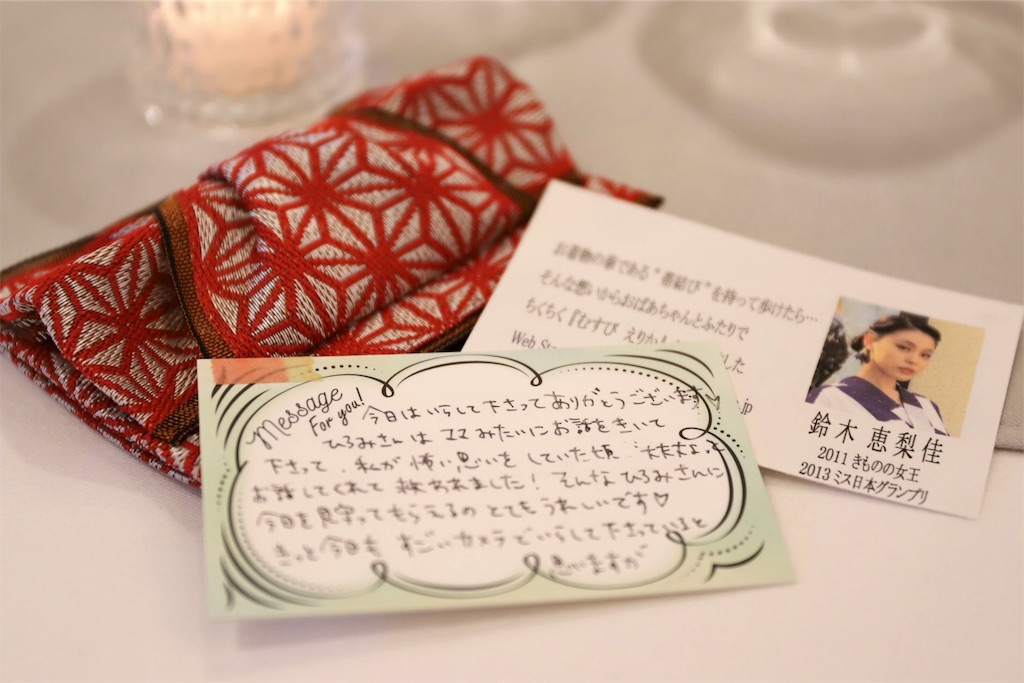 お着物の華である"帯結び"を持って歩けたら…
そんな想いからおばあちゃんとふたりで
ちくちく『むすび えりか
した
Web St
.jp
鈴木 恵梨佳
2011 きものの女王
2013 ミス日本グランプリ
Message
For you!
今日はいらして下さってありがとうございます
ひろみさんは ママみたいにお話をきいて
下さって、私が怖い思いをしていた頃、大丈夫よっと
お話してくれて 救われました！ そんな ひろみさんに
今日を見守ってもらえるの とてもうれしいです♡
きっと今日も すごいカメラでいらして下さっていると
思いますが